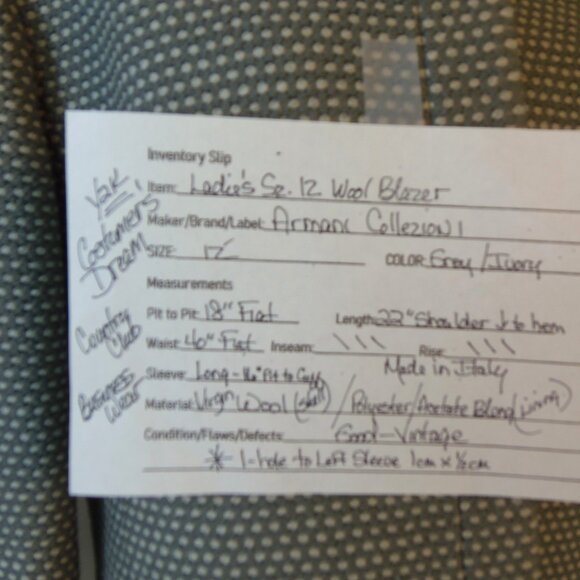 Inventory Slip
Item: Ladie's Sz. 12 Wool Blazer
Maker/Brand/Label: Armani Collezioni
SIZE: 12 COLOR: Grey / Ivory
Measurements
Pit to Pit: 18" Flat Length: 22" Shoulder to hem
Waist: 40" Flat Inseam: \ \ \ Rise: \ \ \
Made in Italy
Sleeve: Long - 16" Pit to Cuff
Material: Virgin Wool (shell) / Polyester/Acetate Blend (lining)
Condition/Flaws/Defects: Good - Vintage
* 1-hole to Left Sleeve 1cm x ½cm
Y2K
Costumers
Dream
Country
Club
Business
Wear